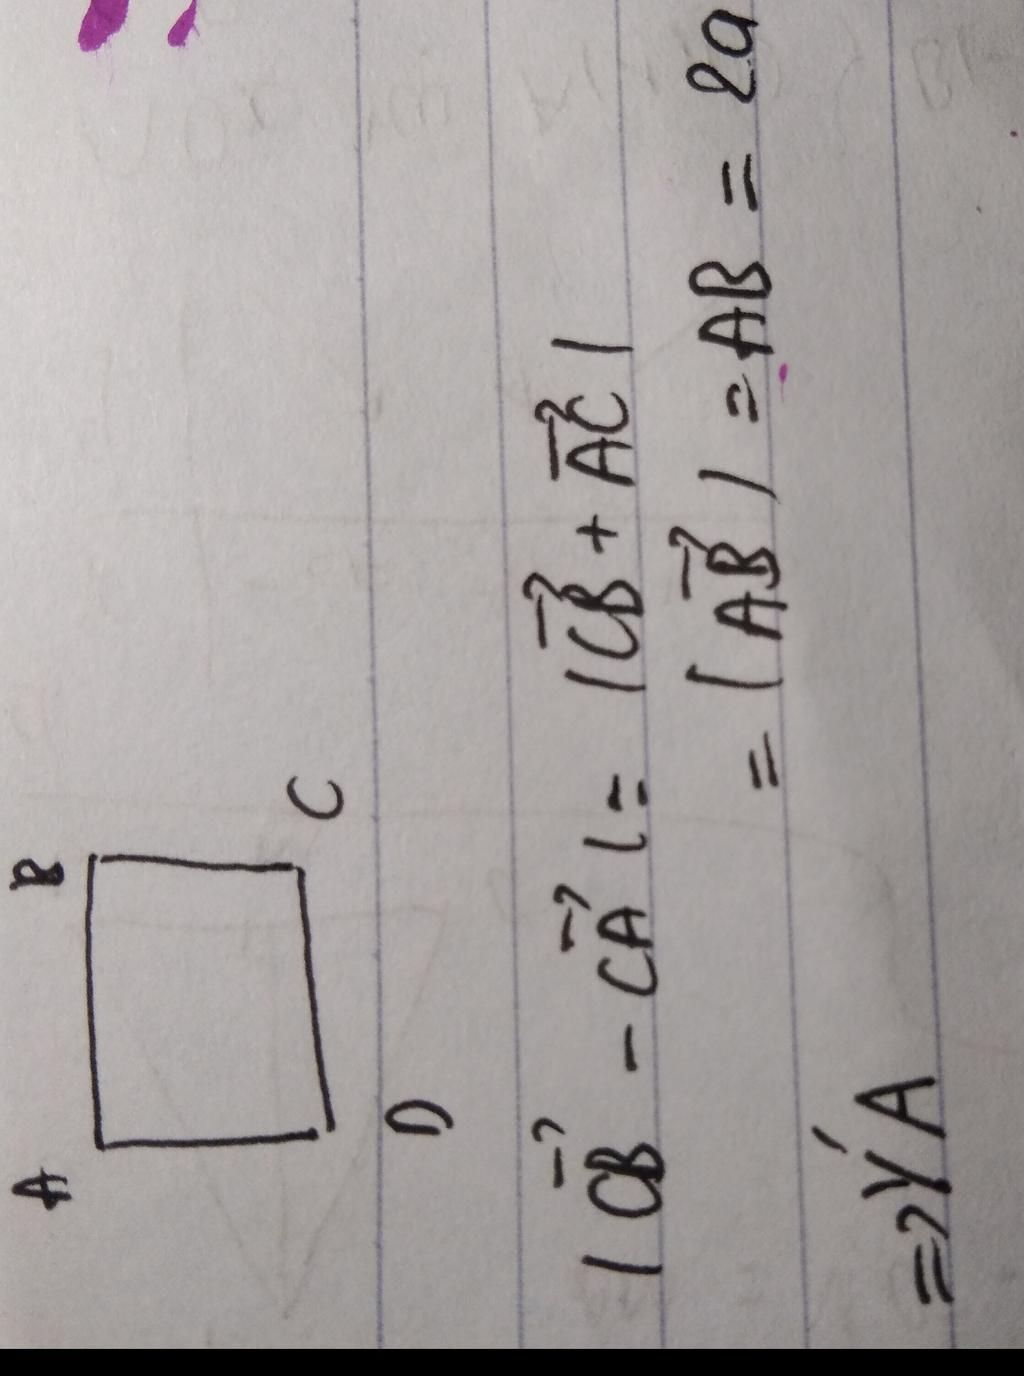 A B
D C
|CB→ - CA→| = |CB→ + AC→|
= |AB→| = AB = 2a
=> Ý A